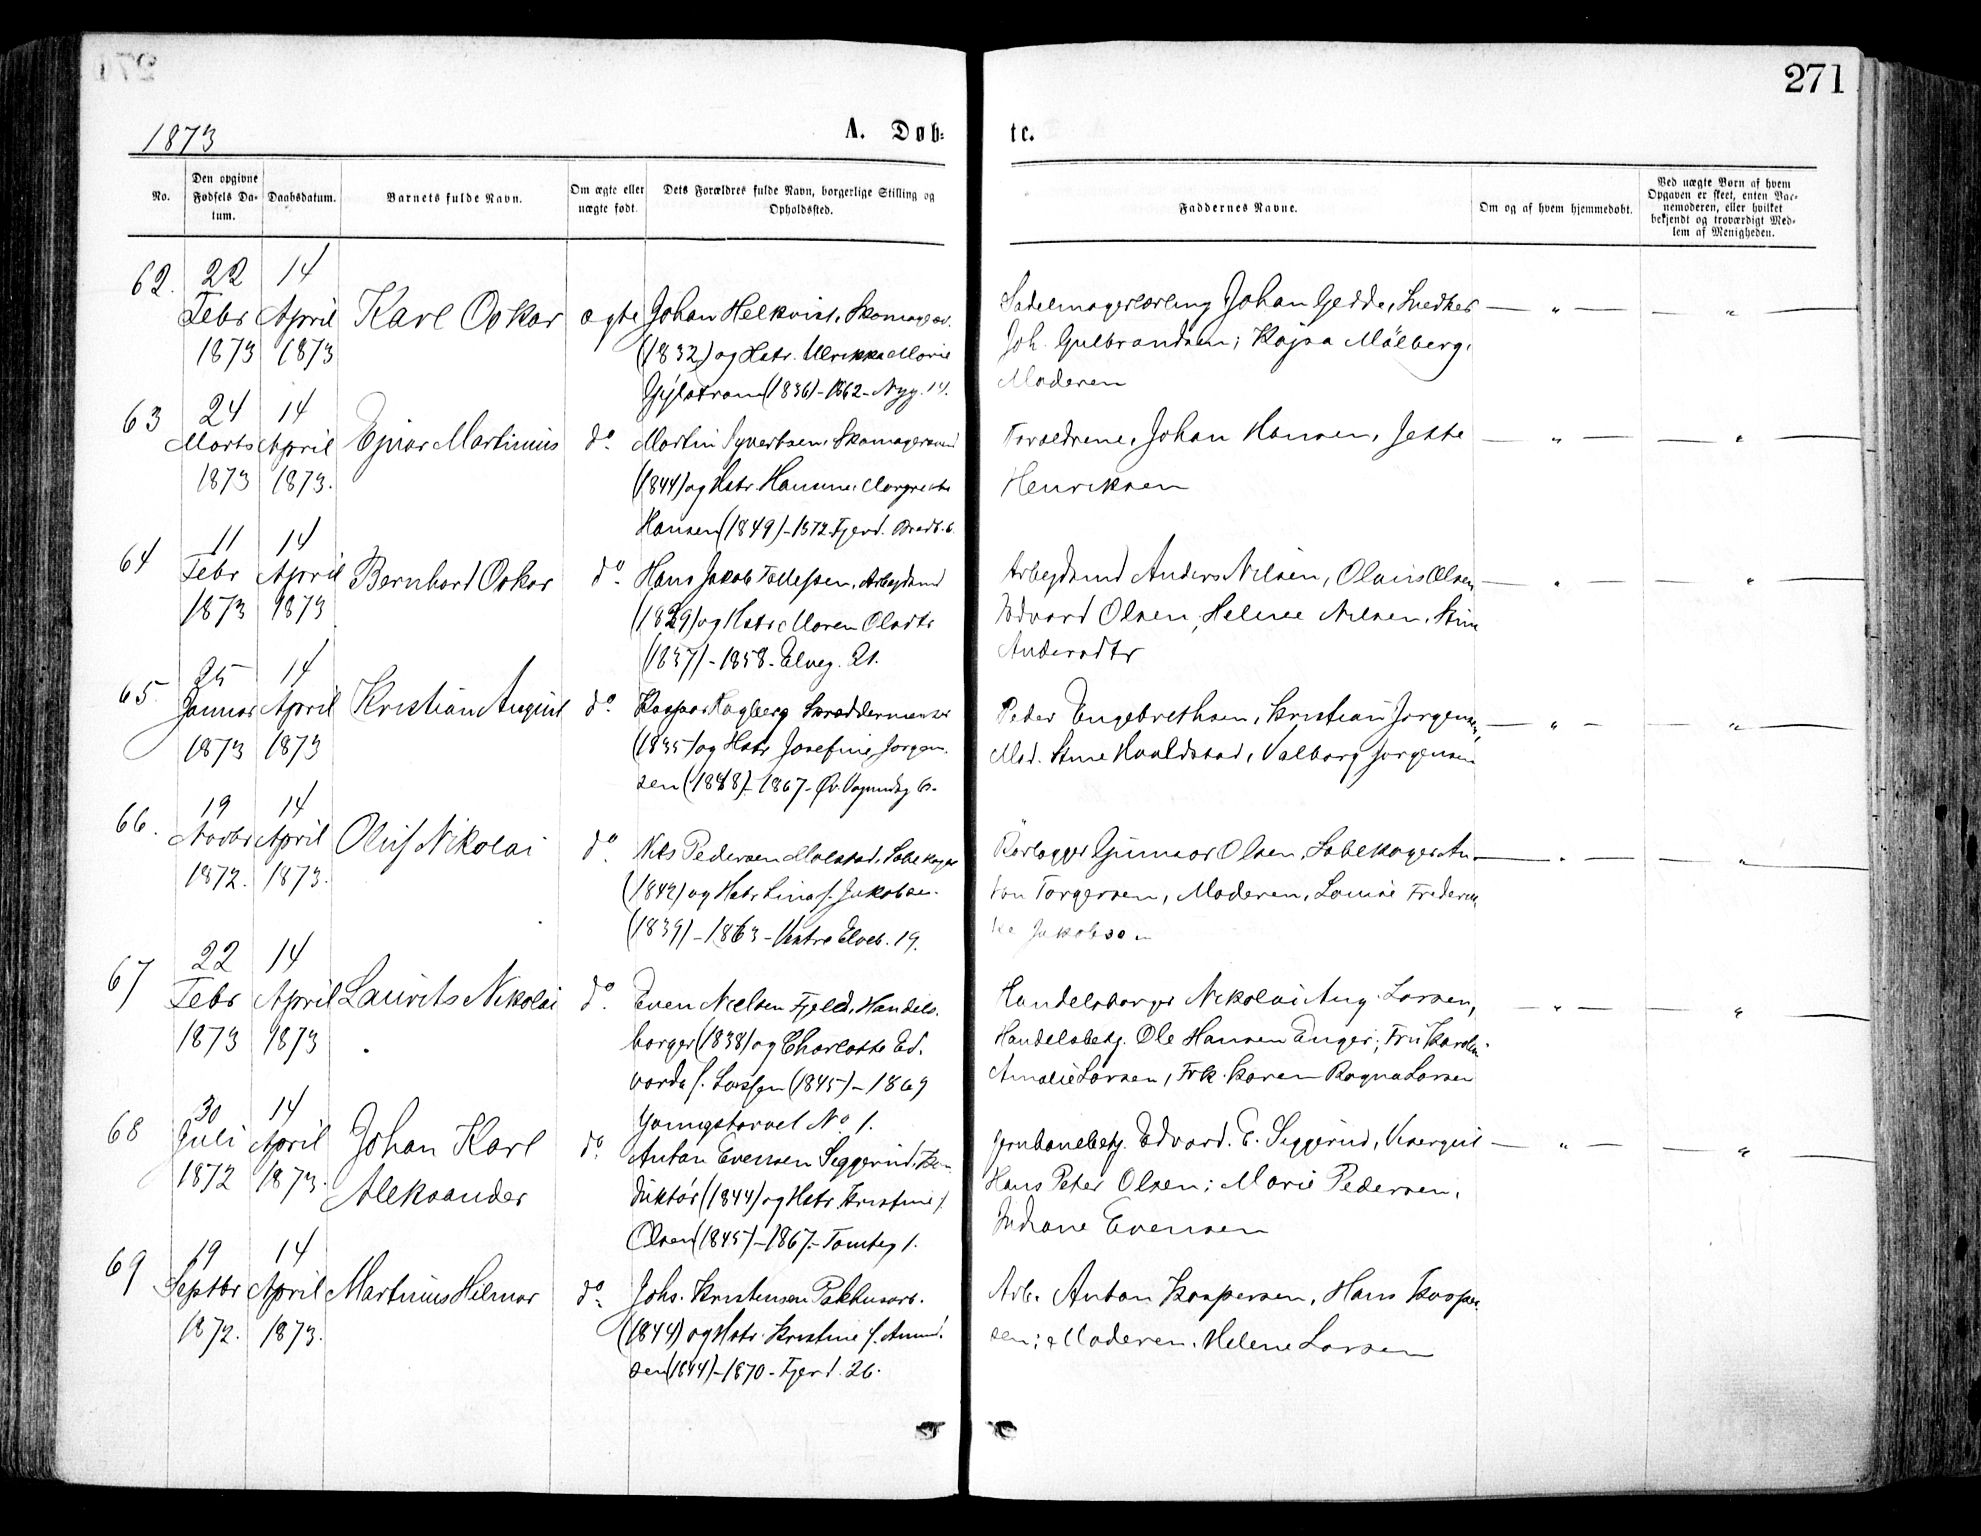 271
1873
A. Døb-
te.
No.
Den opgivne Fødsels Datum.
Daabsdatum.
Barnets fulde Navn.
Om ægte eller uægte født.
Dets Forældres fulde Navn, borgerlige Stilling og Opholdssted.
Faddernes Navne.
Om og af hvem hjemmedøbt.
Ved uægte Børn af hvem Opgaven er skeet, enten Barnemoderen, eller hvilket bekjendt og troværdigt Medlem af Menigheden.
62. 22 Febr 1873
14 April 1873
Karl Oskar
ægte
Johan Helkvist, Skomager
(1832) og Hstr. Ulrikka Marie
(1836) - 1862 - Nyg. 14.
Sadelmagerlærling Johan Gedde, Snedker
Joh. Gulbrandsen; Kajsa Målberg,
Moderen
63 24 Marts 1873
14 April 1873.
Ejnar Martinius
do.
Martin Syvertsen, Skomagersvend
(1844) og Hstr. Hansine Margrethe
Hansen (1849) - 1872. Fjerd. Bredb. 6.
Forældrene, Johan Hansen, Jette
Henriksen
64 11 Febr 1873
14 April 1873
Bernhard Oskar
do.
Hans Jakob Tollefsen, Arbejdsmd
(1829) og Hstr Maren Olsdtr
(1837) - 1858 - Elveg. 21.
Arbejdsmd Anders Nilsen, Olaus Olsen
Edvard Olsen, Helene Nilsen, Stine
Andersdtr
65. 25 Januar 1873
14 April 1873
Kristian August
do.
Kaspar Kagberg Skræddermester
(1835) og Hstr Josefine Jørgen-
sen (1848) - 1867 - Øv. Vognmdsg 6.
Peder Engebrethsen, Kristian Jørgensen,
Mad. Stine Haraldstad, Valborg Jørgensen
66. 19 Novbr 1872.
14 April 1873.
Oluf Nikolai
do.
Nils Pedersen Molstad, Sæbekoger
(1842) og Hstr Lina f. Jakobsen
(1839) - 1863 - Vestre Elveb. 19.
Rørlægger Gunnar Olsen, Sæbekoger An-
ton Torgersen, Moderen, Louise Frederik-
ke Jakobsen
67 22 Febr 1873
14 April 1873
Laurits Nikolai
do.
Even Nielsen Fjeld, Handels-
borger (1838) og Charlotte Ed-
varda f. Larssen (1845) - 1869
Youngstorvet No 1.
Handelsborger Nikolai Aug. Larsen,
Handelsbetj. Ole Hansen Enger; Fru Karoline
Amalie Larsen, Frk. Karen Ragna Larsen
68 30 Juli 1872
14 April 1873.
Johan Karl
Aleksander
do.
Anton Evensen Seggerud, Kon-
duktør (1844) og Hstr. Kristine f.
Olsen (1845) - 1867. - Tomteg 1.
Jernbanebetj. Edvard E. Seggerud, Visergut
Hans Peter Olsen; Marie Pedersen,
Indiane Evensen
69 19 Septbr 1872.
14 April 1873.
Martinius Hilmar
do.
Johs. Kristensen Pakhusarb.
(1844) og Hstr. Kristine f. Amund-
sen (1844) - 1870 - Fjerd. 26.
Arb. Anton Kaspersen, Hans Kasper-
sen; Moderen, Helene Larsen